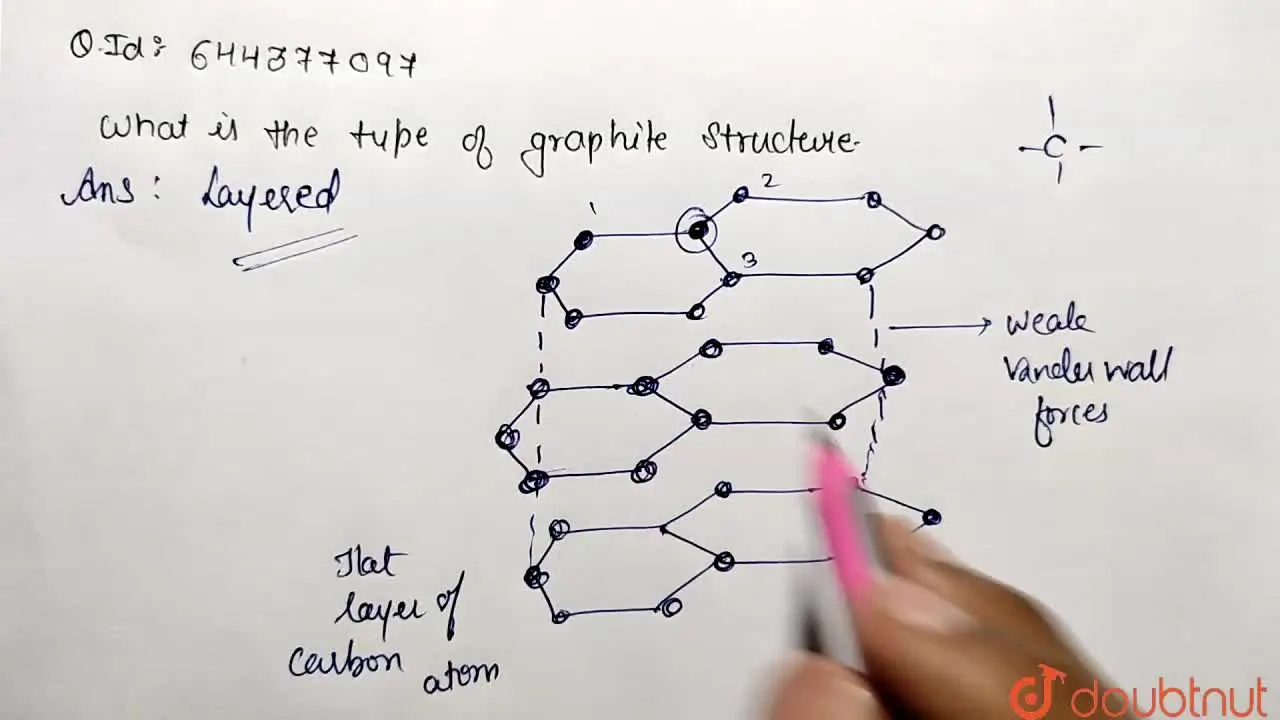 Q.Id: 644377097
What is the type of graphite structure.
Ans: Layered
C
2
3
weak
Vander wall
forces
flat
layer of
carbon atom
doubtnut